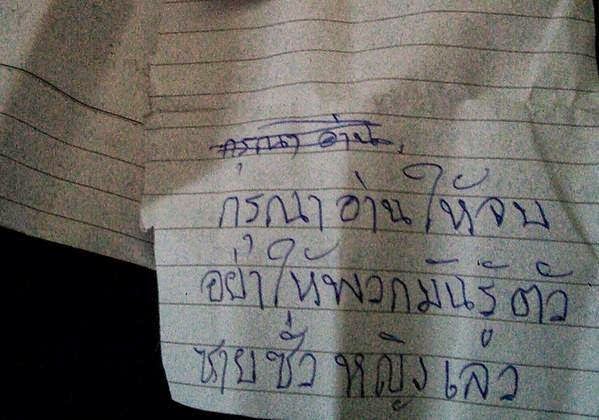 กรุณา อ่าน
กรุณา อ่าน ให้จบ
อย่าให้พวกมันรู้ ตัว
ชายชั่ว หญิงเลว